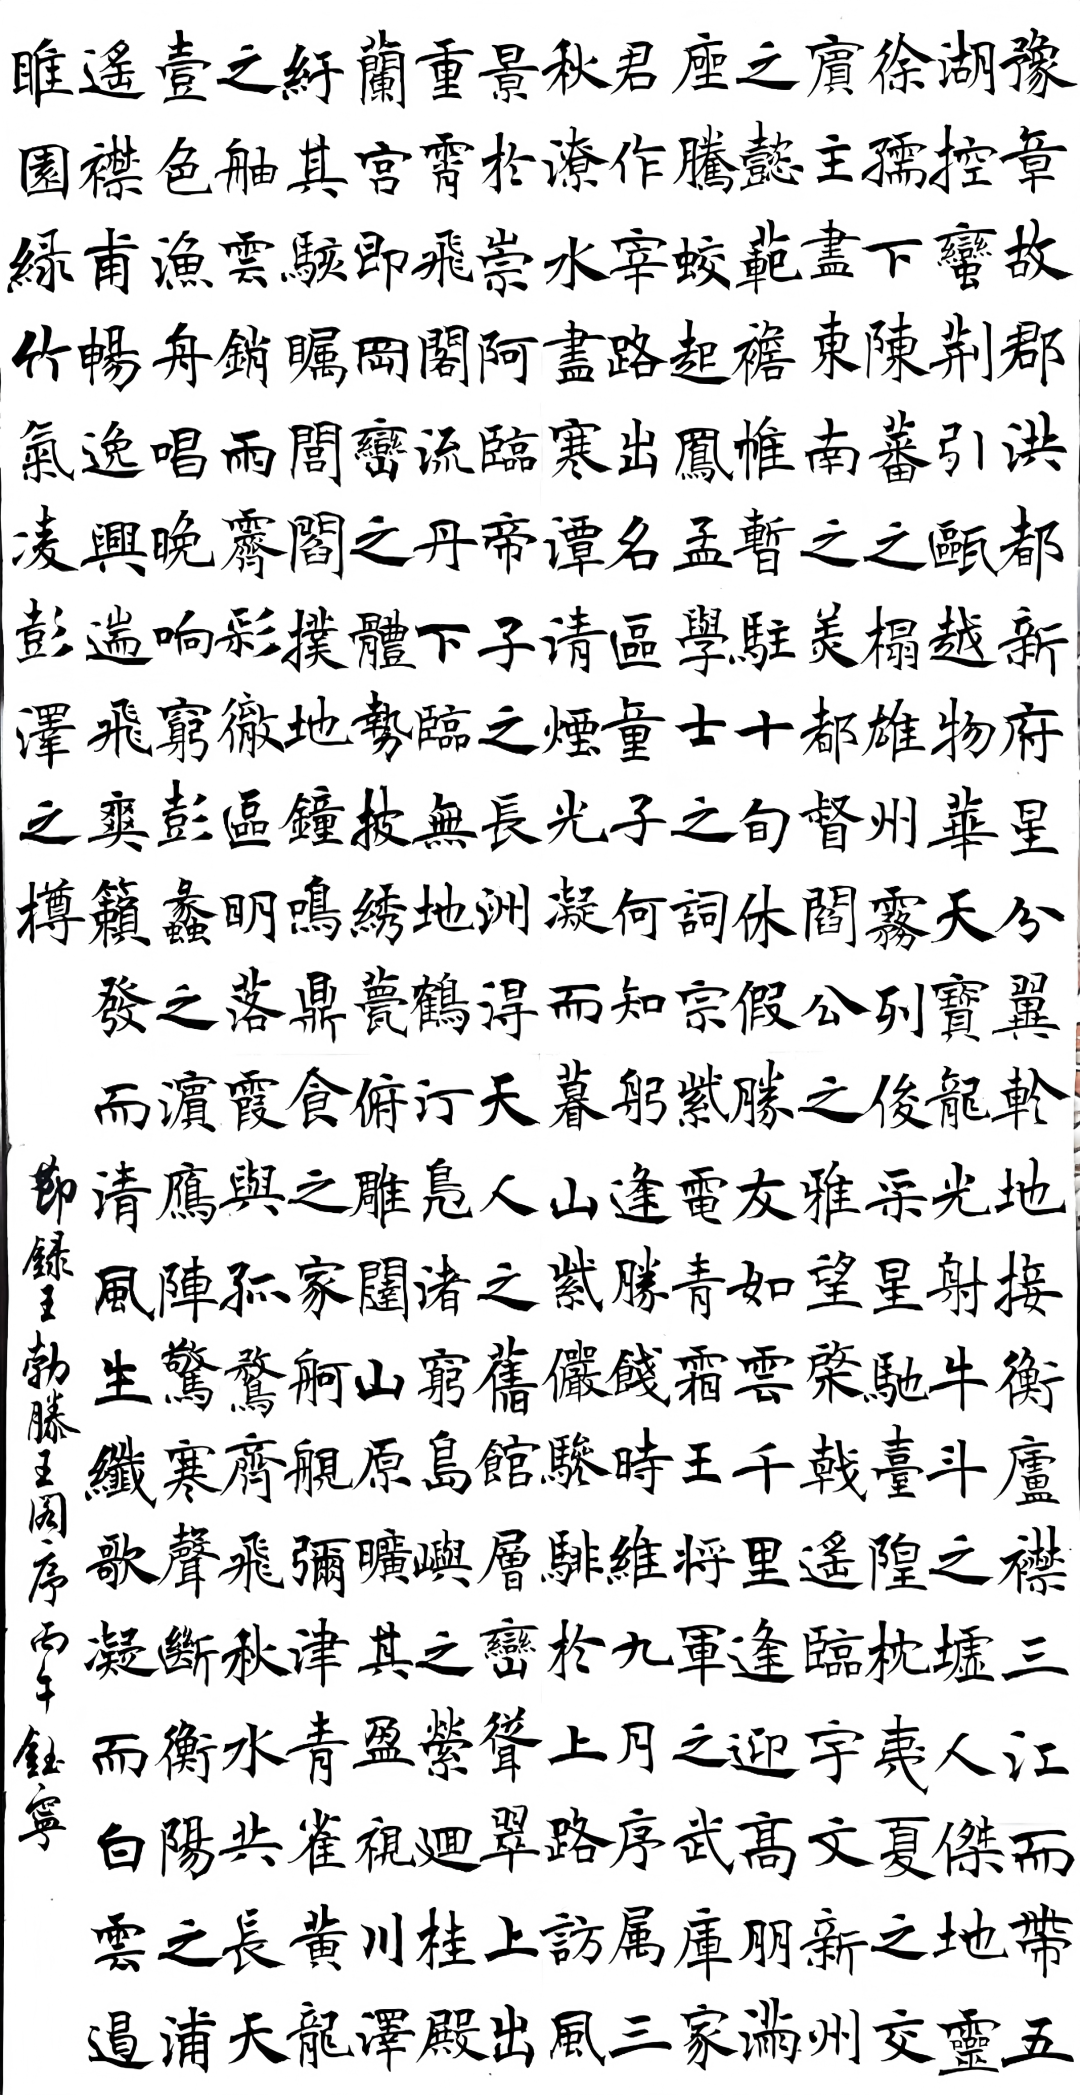 豫章故郡洪都新府星分翼軫地接衡廬襟三江而帶五
湖控蠻荆引甌越物華天寶龍光射牛斗之墟人傑地靈
徐孺下陳蕃之榻雄州霧列俊采星馳臺隍枕夷夏之交
賓主盡東南之美都督閻公之雅望棨戟遥臨宇文新州
之懿範襜帷暫駐十旬休假勝友如雲千里逢迎髙朋滿
座騰蛟起鳳孟學士之詞宗紫電青霜王将軍之武庫家
君作宰路出名區童子何知躬逢勝餞時維九月序属三
秋潦水盡寒潭清煙光凝而暮山紫儼驂騑於上路訪風
景於崇阿臨帝子之長洲得天人之舊館層巒聳翠上出
重霄飛閣流丹下臨無地鶴汀凫渚窮島嶼之縈迴桂殿
蘭宫即岡巒之體勢披綉甍俯雕闥山原曠其盈視川澤
紆其駭矚閭閻撲地鐘鳴鼎食之家舸艦彌津青雀黄龍
之舳雲銷雨霽彩徹區明落霞與孤鶩齊飛秋水共長天
壹色漁舟唱晚响窮彭蠡之濱鴈陣驚寒聲斷衡陽之浦
遥襟甫暢逸興遄飛爽籟發而清風生纖歌凝而白雲遏
睢園緑竹氣凌彭澤之樽
節録王勃滕王阁序丙午鈺寧